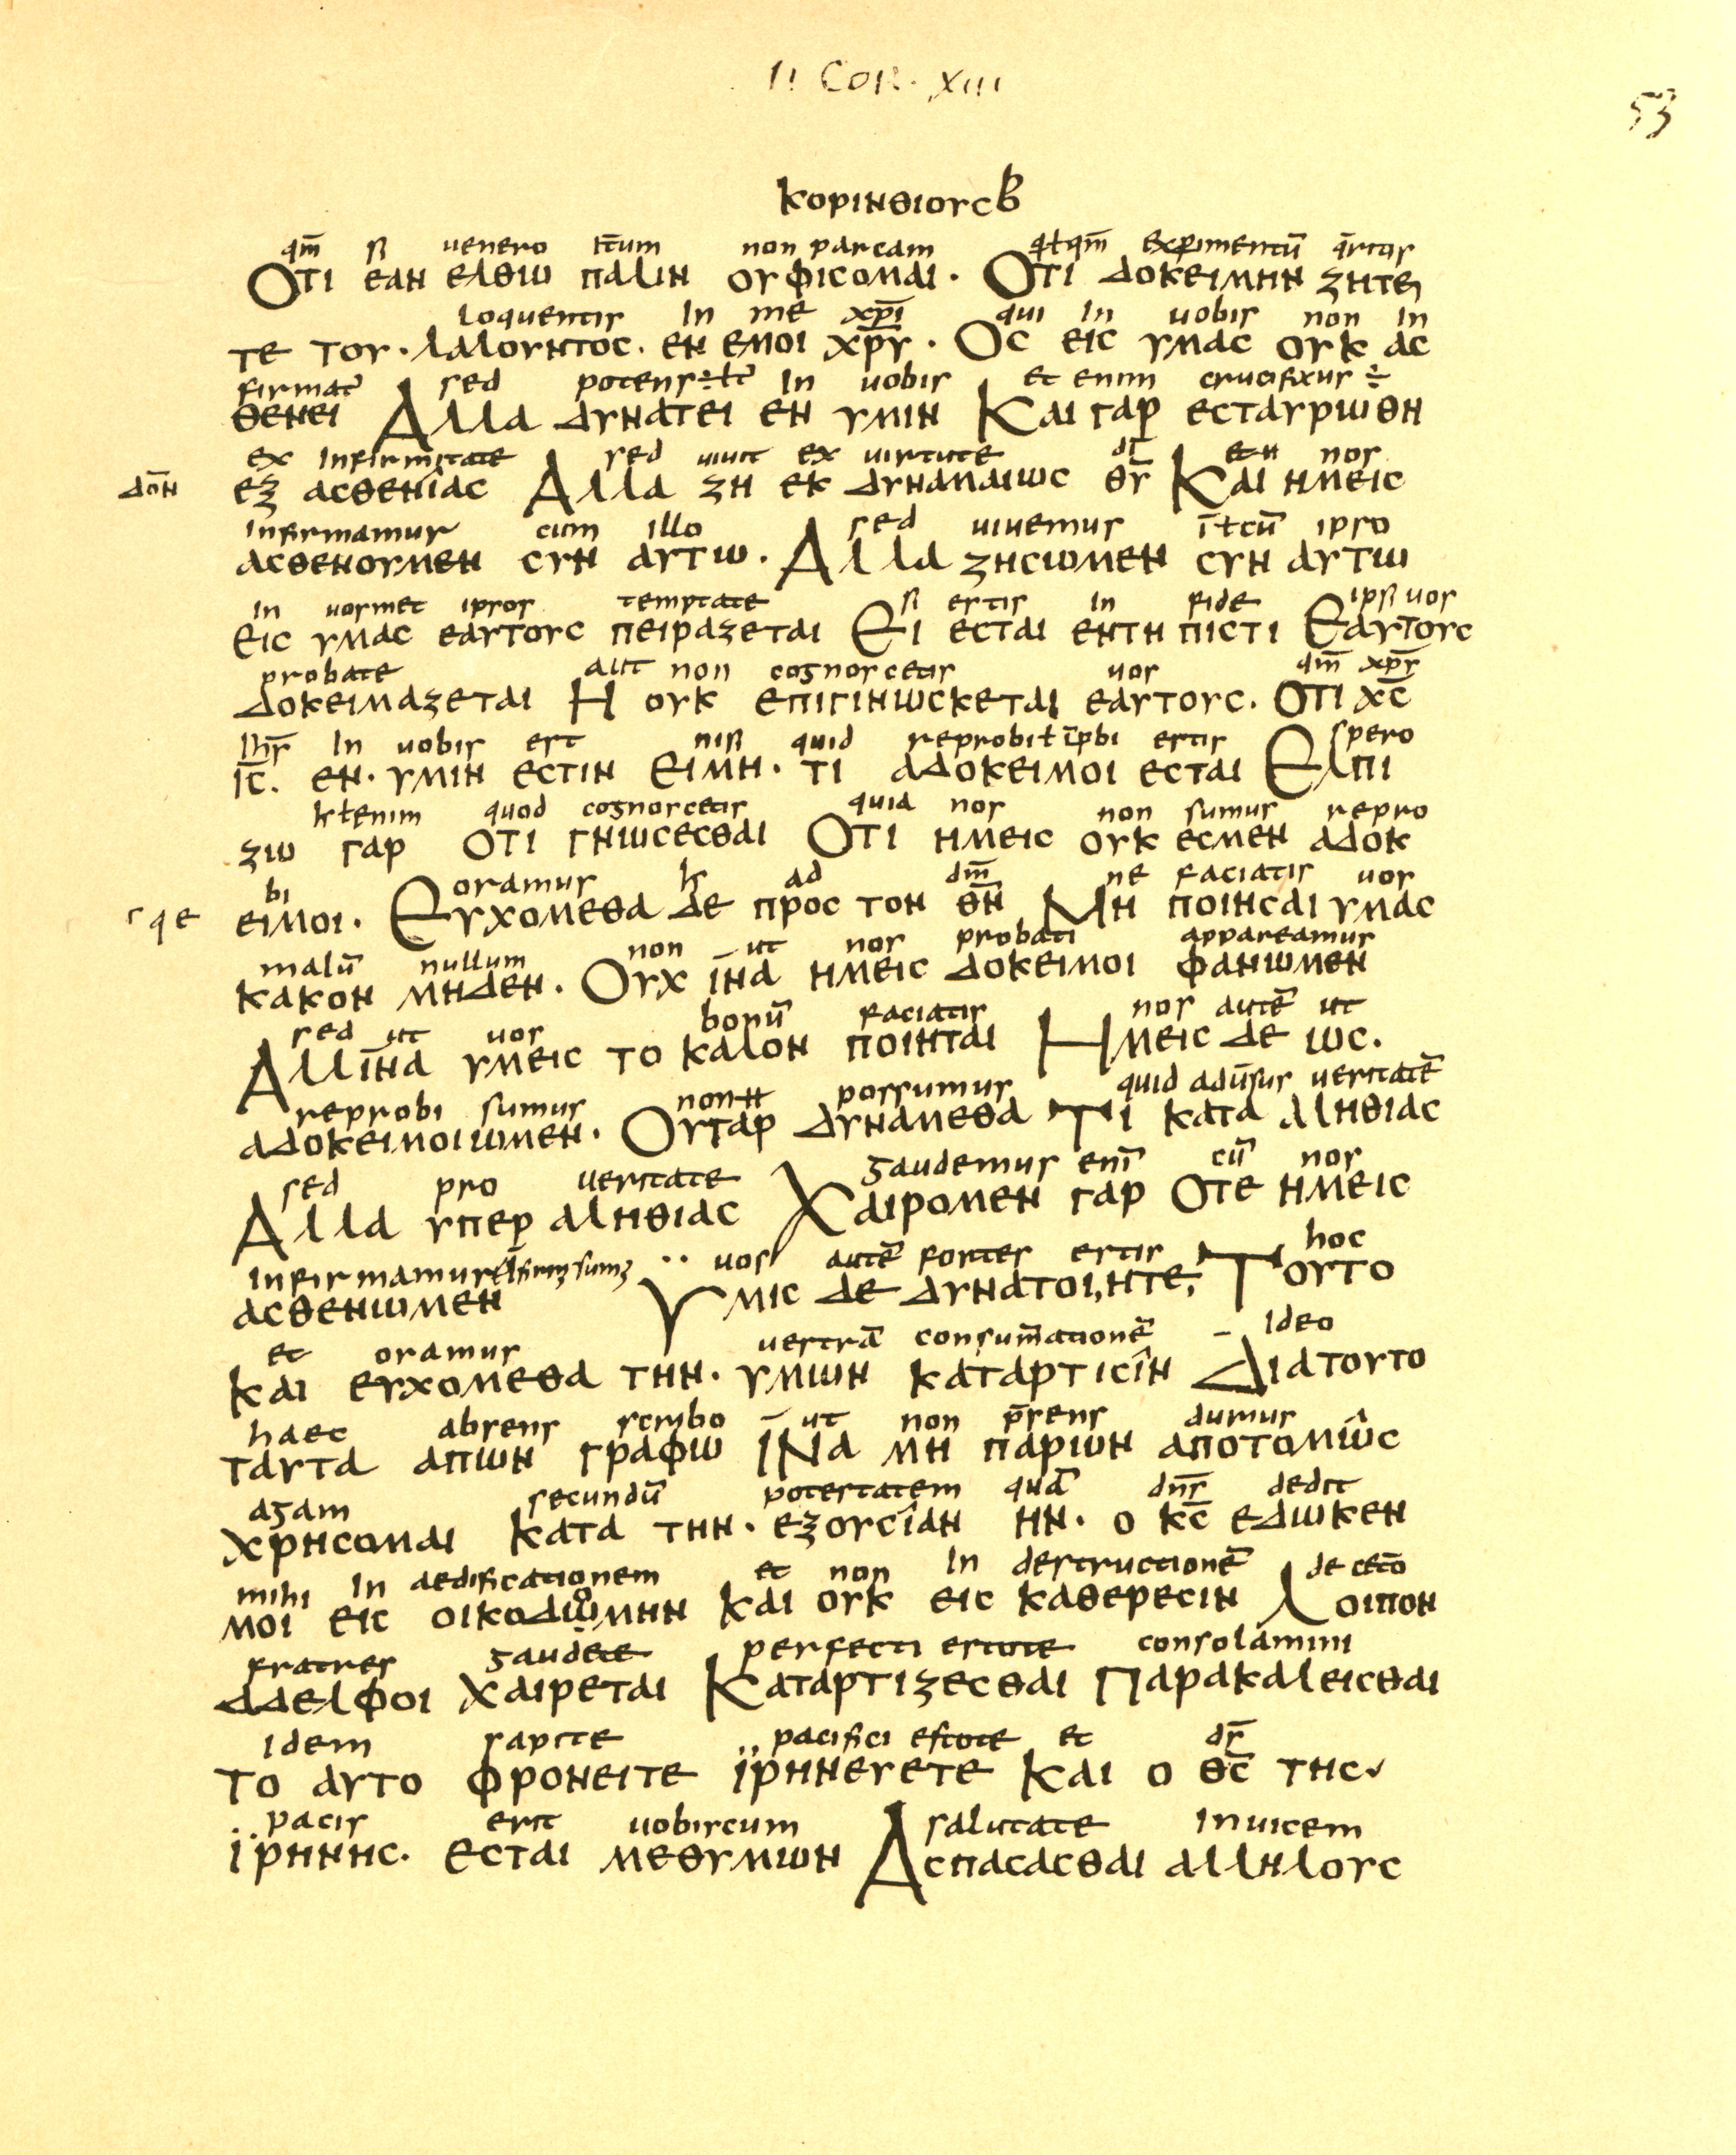 II COR. XIII
53
κορινθιουςβ
qm̄ si uenero itcum non parcam qłqm̄ experimentū
Οτι εαν ελθω παλιν ου φισομαι · Οτι δοκειμην ζητει
loquentis in me xp̄i qui in uobis non in
τε του · λαλουντος · εν εμοι χρ̄υ · Ος εις υμας ουκ ας
firmat sed potens ÷ in uobis et enim crucifixus ÷
θενει Αλλα δυνατει εν υμιν Και γαρ εσταυρωθη
ex infirmitate sed uiuit ex uirtute dī nos
εξ ασθενιας Αλλα ζη εκ δυναμαιως θ̄υ Και ημεις
infirmamur cum illo sed uiuemus ī ł cū ipso
ασθενουμεν συν αυτω · Αλλα ζησωμεν συν αυτω
in uosmet ipsos temptate si estis in fide ipsi uos
εις υμας εαυτους πειραζεται Ει εσται εν τη πιστι Εαυτους
probate aut non cognoscetis uos qm̄ xp̄s
δοκειμαζεται Η ουκ επιγινωσκεται εαυτους · οτι χ̄ς
ih̄s in uobis est nisi quid reprobi ł īpbi estis spero
ῑς · εν · υμιν εστιν ειμη · τι αδοκειμοι εσται Ελπι
enim quod cognoscetis quia nos non sumus repro
ζω γαρ οτι γνωσεσθαι Οτι ημεις ουκ εσμεν αδοκ
bi oramus ad dm̄ ne faciatis uos
ειμοι · Ευχομεθα δε προς τον θ̄ν Μη ποιησαι υμας
malū nullum non ut nos probati appareamus
κακον μηδεν · Ουχ ϊνα ημεις δοκειμοι φανωμεν
sed ut uos bonū faciatis nos autē ut
Αλλϊνα υμεις το καλον ποιηται Ημεις δε ως ·
reprobi sumus non possumus quid adūsus ueritatē
αδοκειμοι ωμεν · Ουγαρ δυναμεθα Τι κατα αληθιας
sed pro ueritate gaudemus enī cū nos
Αλλα υπερ αληθιας Χαιρομεν γαρ οτε ημεις
infirmamur uos autē fortes estis hoc
ασθενωμεν Υμις δε δυνατοι, ητε, Τουτο
et oramus uestrā consum̄ationē ideo
και ευχομεθα την · υμων καταρτισιν Διατουτο
haec absens scribo ut non p̄sens durius
ταυτα απων γραφω ΙΝα μη παριων αποτομως
agam secundū potestatem quā dn̄s dedit
χρησομαι κατα την · εξουσιαν ην · ο κ̄ς εδωκεν
mihi in aedificationem et non in destructionē de cetō
μοι εις οικοδωμην και ουκ εις καθερεσιν Λοιπον
fratres gaudete perfecti estote consolamini
αδελφοι χαιρεται Καταρτιζεσθαι Παρακαλεισθαι
idem sapite pacifici estote et ds̄
το αυτο φρονειτε ϊρηνευετε και ο θ̄ς της
pacis erit uobiscum salutate inuicem
ϊρηνης · εσται μεθυμων Ασπασασθαι αλληλους